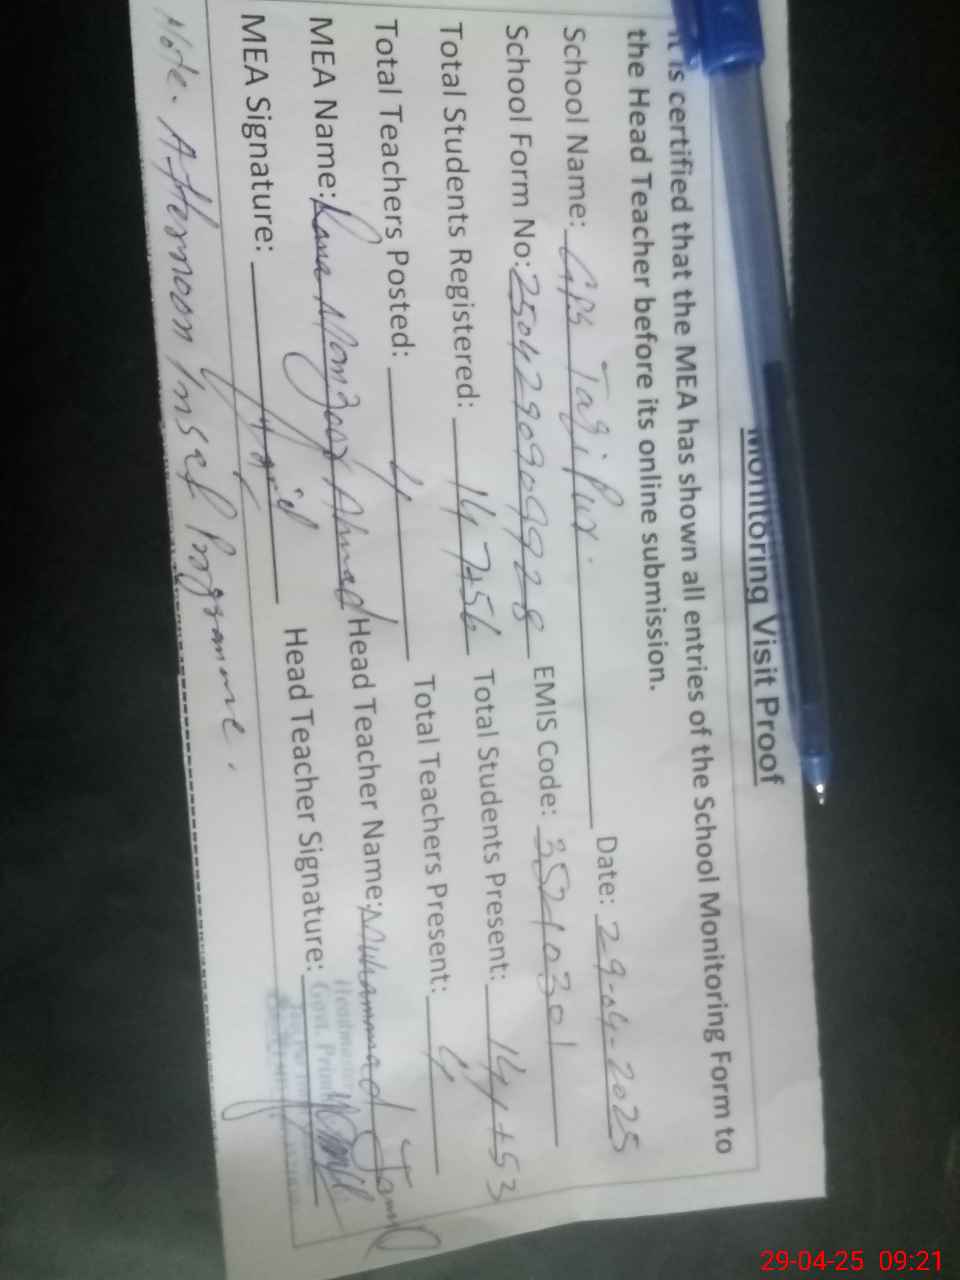 Monitoring Visit Proof
It is certified that the MEA has shown all entries of the School Monitoring Form to
the Head Teacher before its online submission.
School Name: GPS Tajipur. Date: 29-04-2025
School Form No: EMIS Code: 35210301
Total Students Registered: Total Students Present: 144+53
Total Teachers Posted: 4 Total Teachers Present: 4
MEA Name: Rana Manzoor Ahmad Head Teacher Name: Muhammad Jamil
MEA Signature: Head Teacher Signature:
Govt. Primary
Note. Afternoon Insaf Programme.
29-04-25 09:21